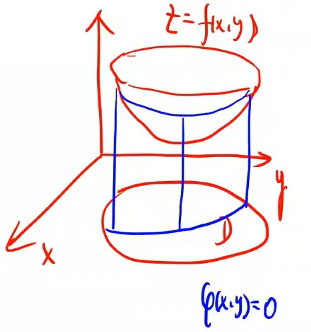 z=f(x,y)
y
x
D
φ(x,y)=0